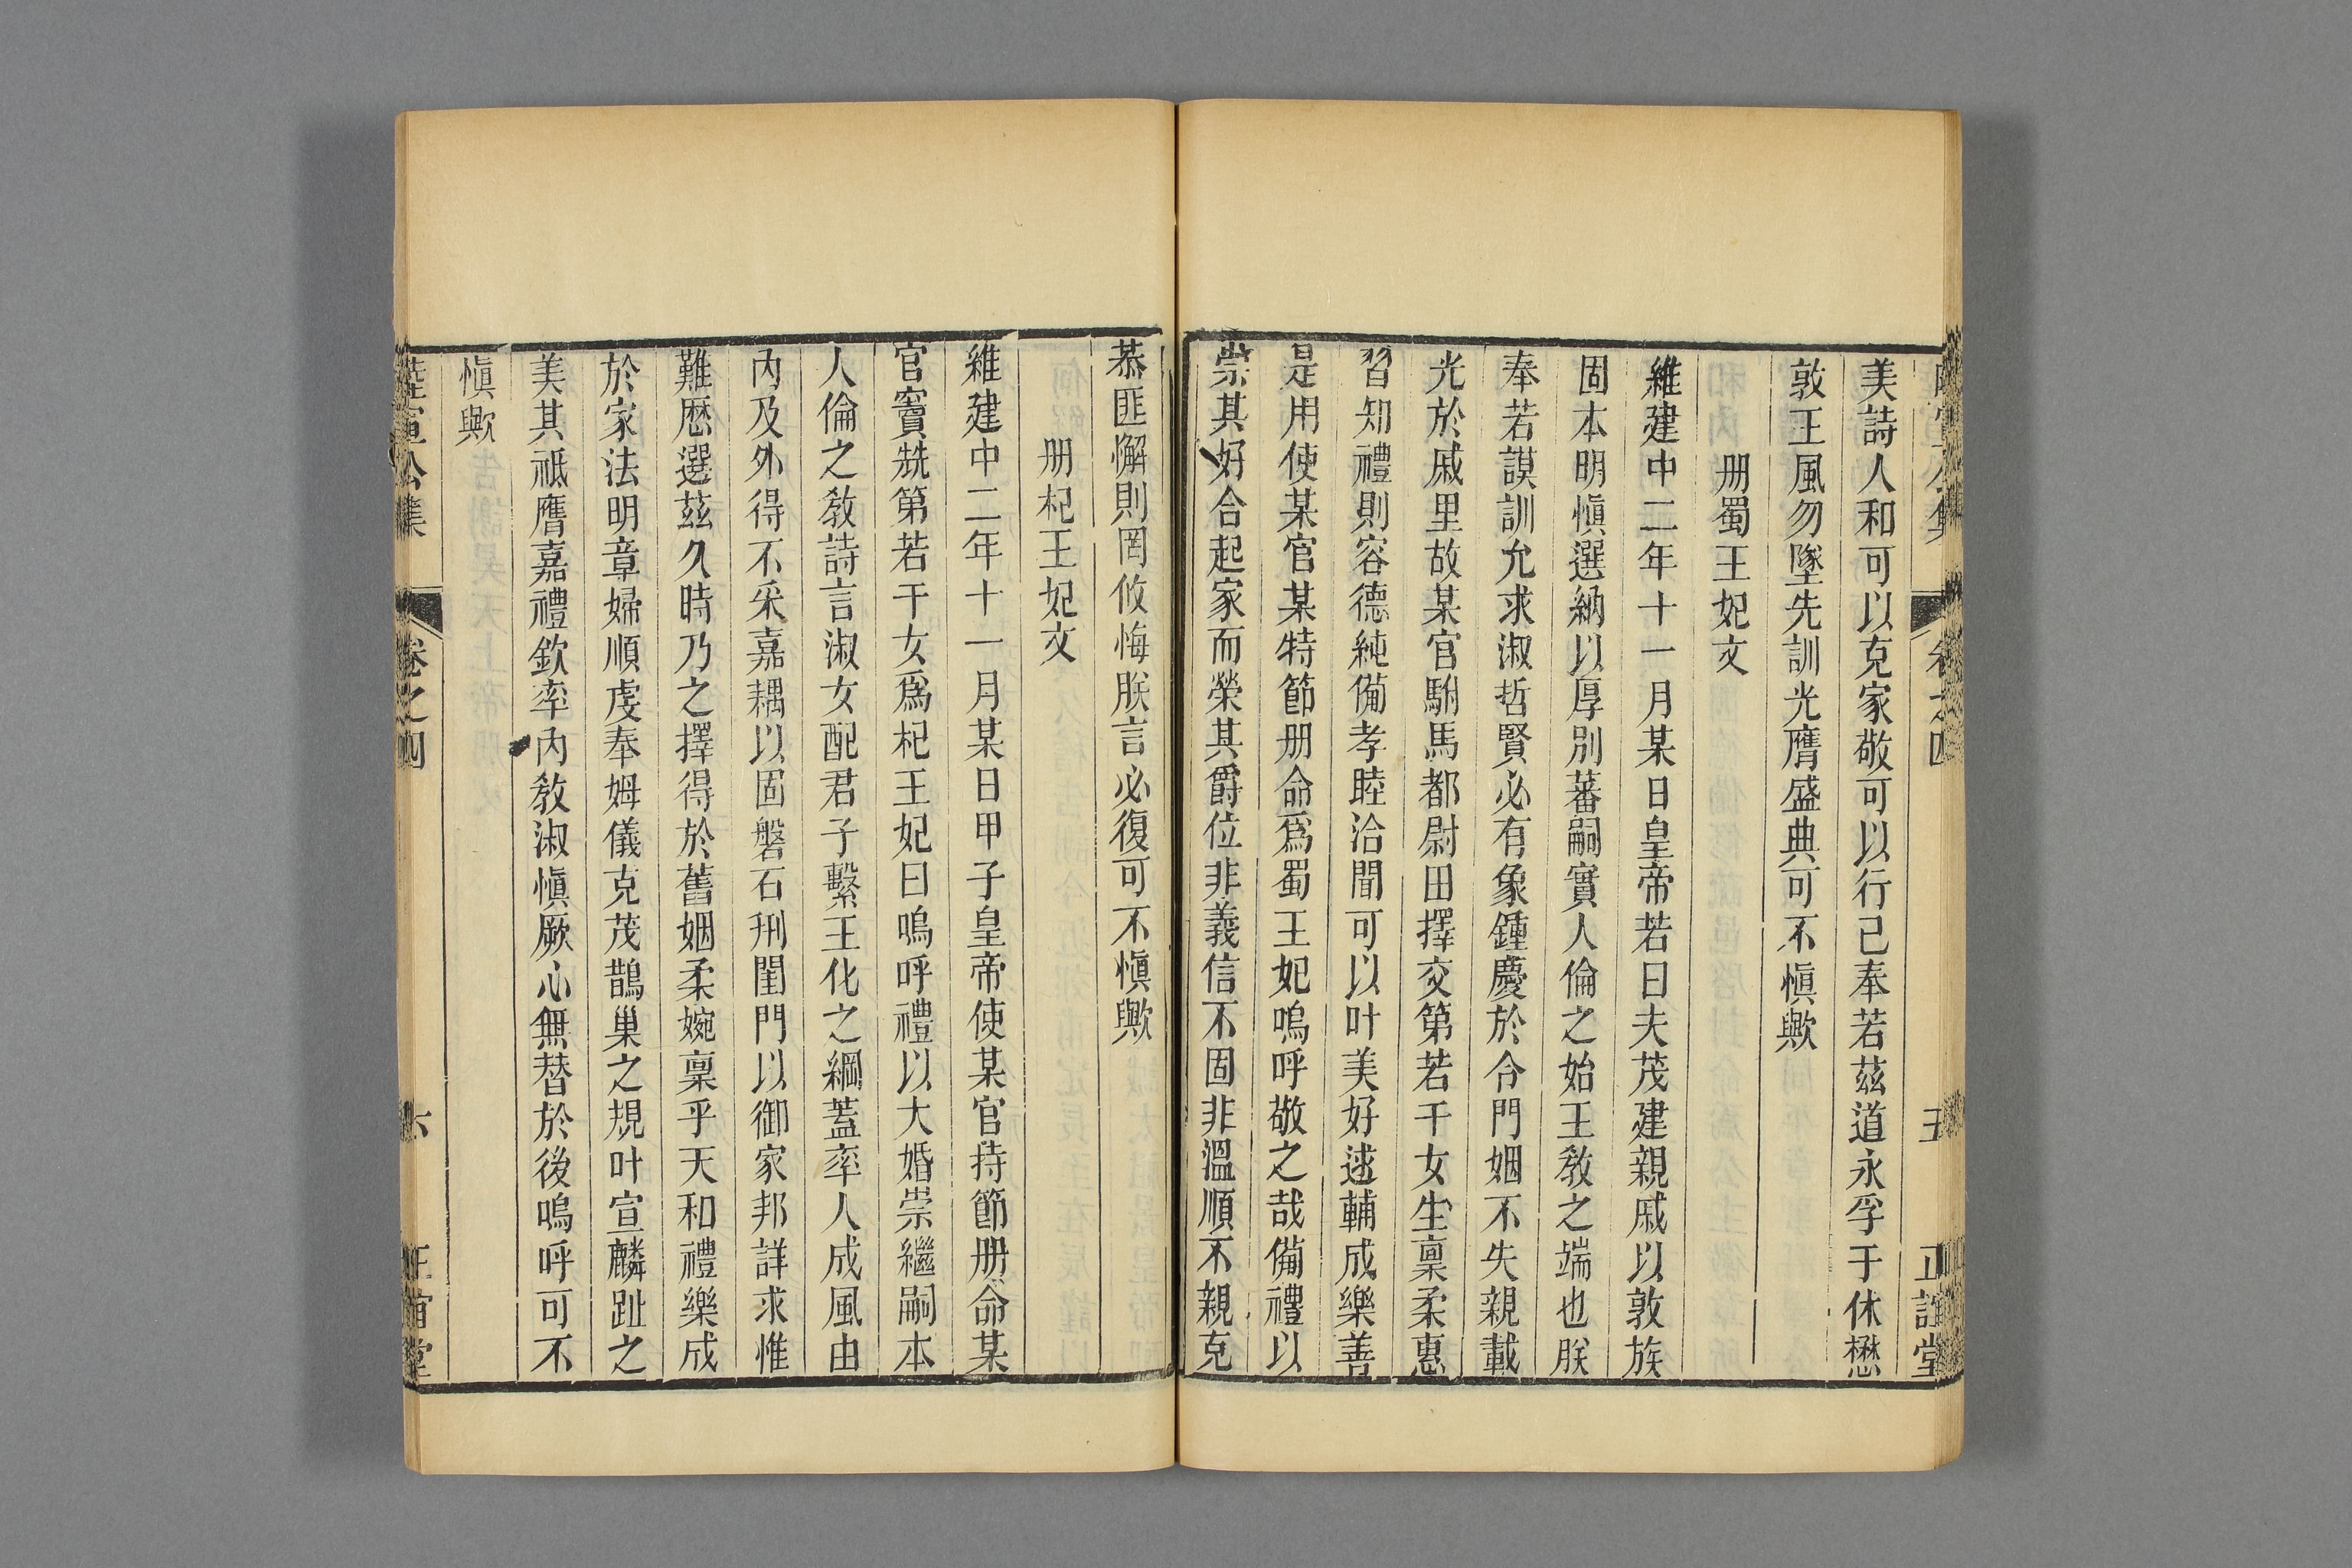 美詩人和可以克家敬可以行己奉若茲道永孚于休懋
敦王風勿墜先訓光膺盛典可不愼歟
册蜀王妃文
維建中二年十一月某日皇帝若曰夫茂建親戚以敦族
固本明愼選納以厚別蕃嗣實人倫之始王敎之端也朕
奉若謨訓允求淑哲賢必有象鍾慶於令門姻不失親載
光於戚里故某官駙馬都尉田擇交第若干女生稟柔惠
習知禮則容德純備孝睦洽聞可以叶美好逑輔成樂善
是用使某官某特節册命爲蜀王妃嗚呼敬之哉備禮以
崇其好合起家而榮其爵位非義信不固非溫順不親克
恭匪懈則罔攸悔朕言必復可不愼歟
册杞王妃文
維建中二年十一月某日甲子皇帝使某官持節册命某
官竇兟第若干女爲杞王妃曰嗚呼禮以大婚崇繼嗣本
人倫之敎詩言淑女配君子繫王化之綱蓋率人成風由
內及外得不采嘉耦以固磐石刑閨門以御家邦詳求惟
難歷選茲久時乃之擇得於舊姻柔婉稟乎天和禮樂成
於家法明章婦順虔奉姆儀克茂鵲巢之規叶宣麟趾之
美其祗膺嘉禮欽率內敎淑愼厥心無替於後嗚呼可不
愼歟
陸宣公集
卷之四
六
正誼堂